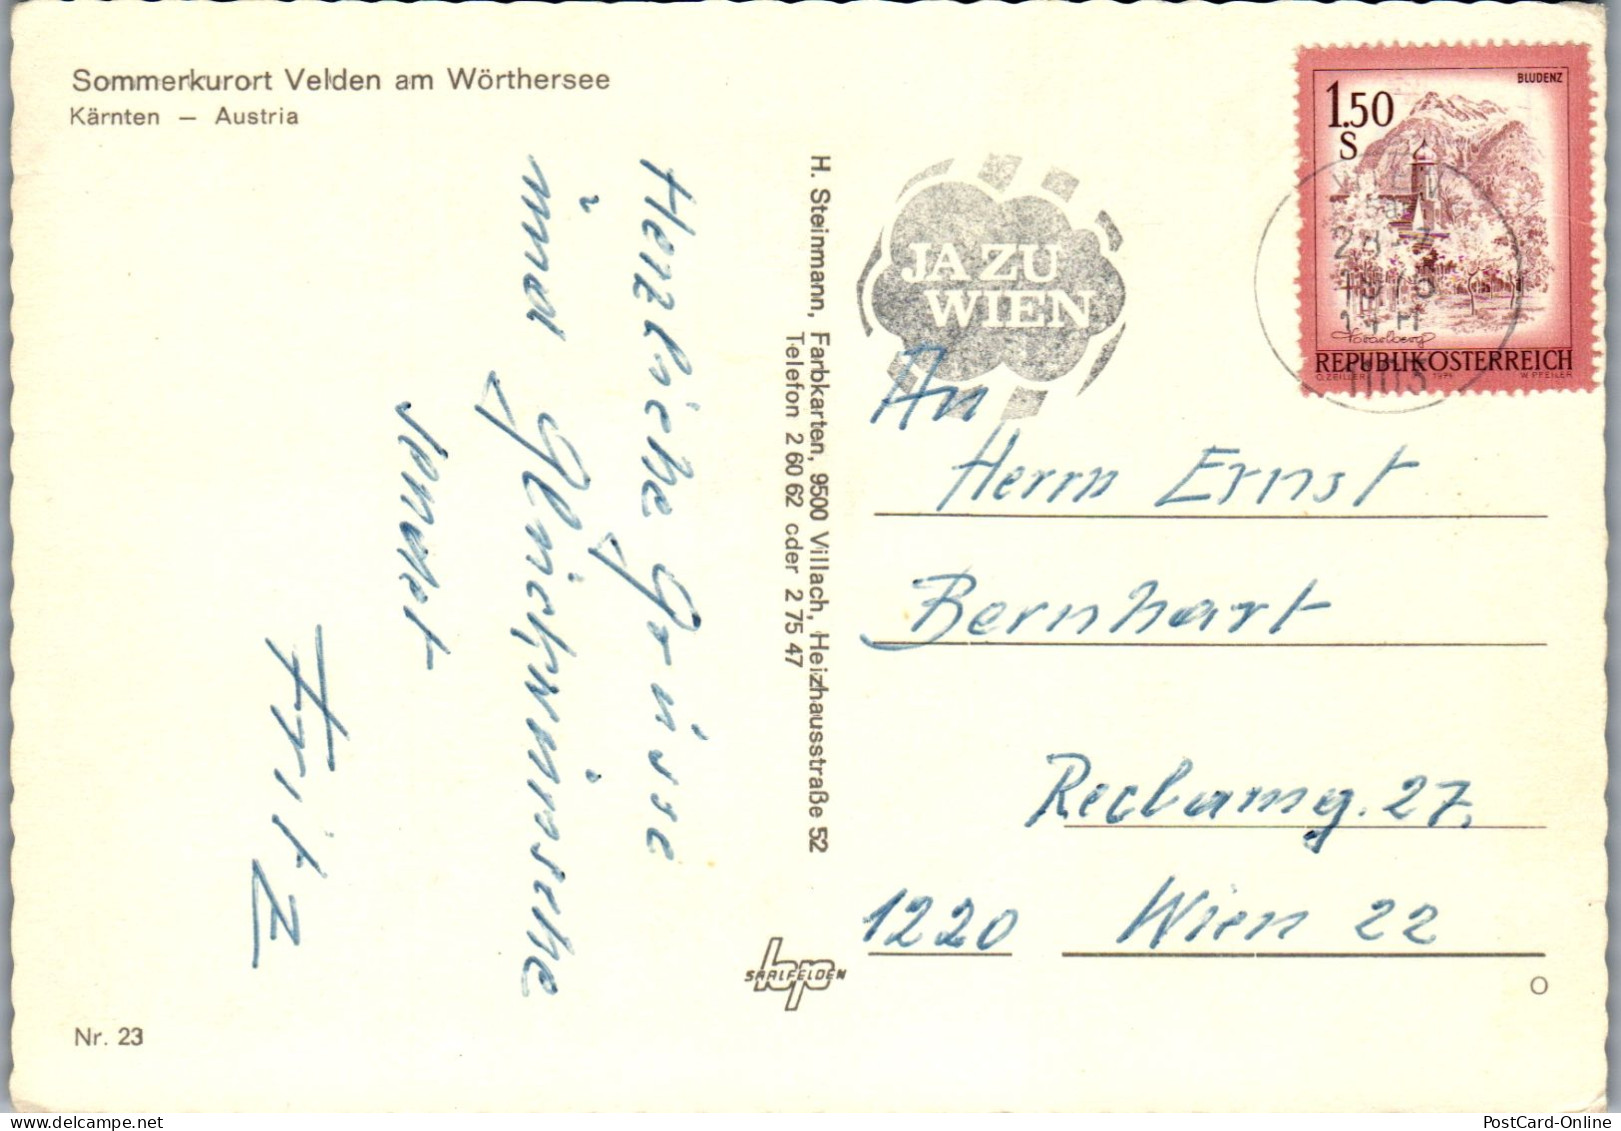 Sommerkurort Velden am Wörthersee
Kärnten — Austria
Herzliche Grüsse
und Glückwünsche
sendet
Fritz
Nr. 23
H. Steinmann, Farbkarten, 9500 Villach, Heizhausstraße 52
Telefon 2 60 62 oder 2 75 47
SAALFELDEN
JA ZU
WIEN
BLUDENZ
1.50
S
Vorarlberg
REPUBLIK ÖSTERREICH
O. ZEILLER 1974 W. PFEILER
WIEN
1103
An
Herrn Ernst
Bernhart
Reclamg. 27.
1220 Wien 22
PostCard-Online